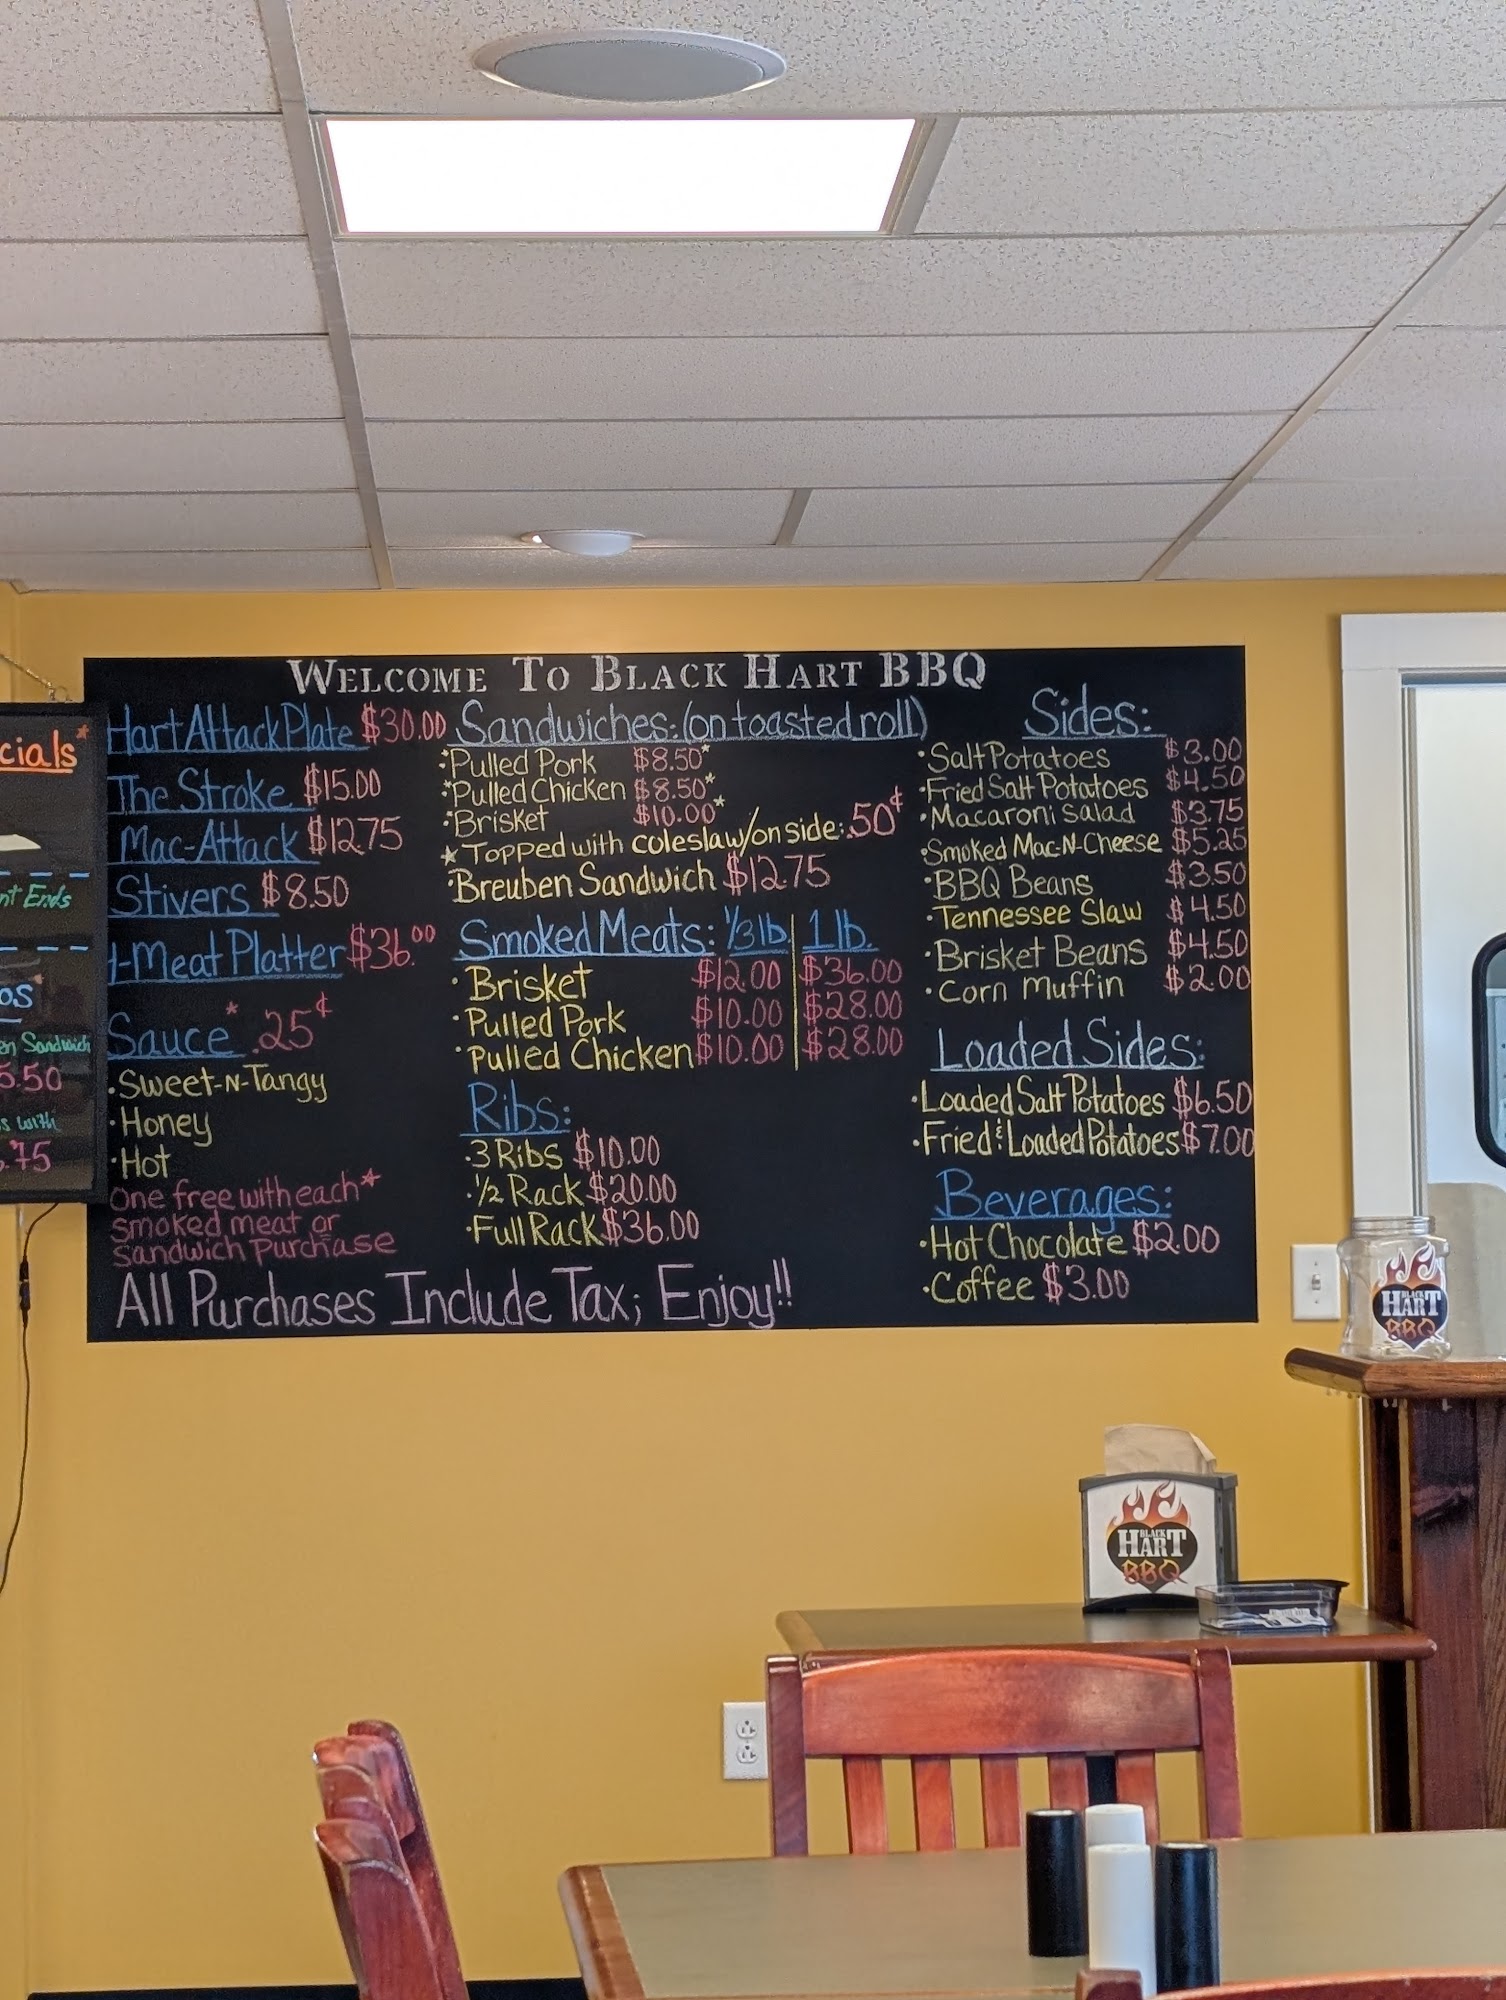 cials*
nt Ends
os
en Sandwich
5.50
s with
.75
WELCOME TO BLACK HART BBQ
Hart Attack Plate $30.00
The Stroke $15.00
Mac-Attack $12.75
Stivers $8.50
-Meat Platter $36.00
Sauce* .25¢
·Sweet-N-Tangy
·Honey
·Hot
One free with each*
smoked meat or
Sandwich purchase
Sandwiches: (on toasted roll)
·Pulled Pork $8.50*
·Pulled Chicken $8.50*
·Brisket $10.00*
*Topped with coleslaw/on side: .50¢
·Breuben Sandwich $12.75
Smoked Meats: 1/3 lb. 1 lb.
·Brisket $12.00 $36.00
·Pulled Pork $10.00 $28.00
·Pulled Chicken $10.00 $28.00
Ribs:
·3 Ribs $10.00
·1/2 Rack $20.00
·Full Rack $36.00
Sides:
·Salt Potatoes $3.00
·Fried Salt Potatoes $4.50
·Macaroni Salad $3.75
·Smoked Mac-N-Cheese $5.25
·BBQ Beans $3.50
·Tennessee Slaw $4.50
·Brisket Beans $4.50
·Corn Muffin $2.00
Loaded Sides:
·Loaded Salt Potatoes $6.50
·Fried & Loaded Potatoes $7.00
Beverages:
·Hot Chocolate $2.00
·Coffee $3.00
All Purchases Include Tax; Enjoy!!
BLACK
HART
BBQ
BLACK
HART
BBQ